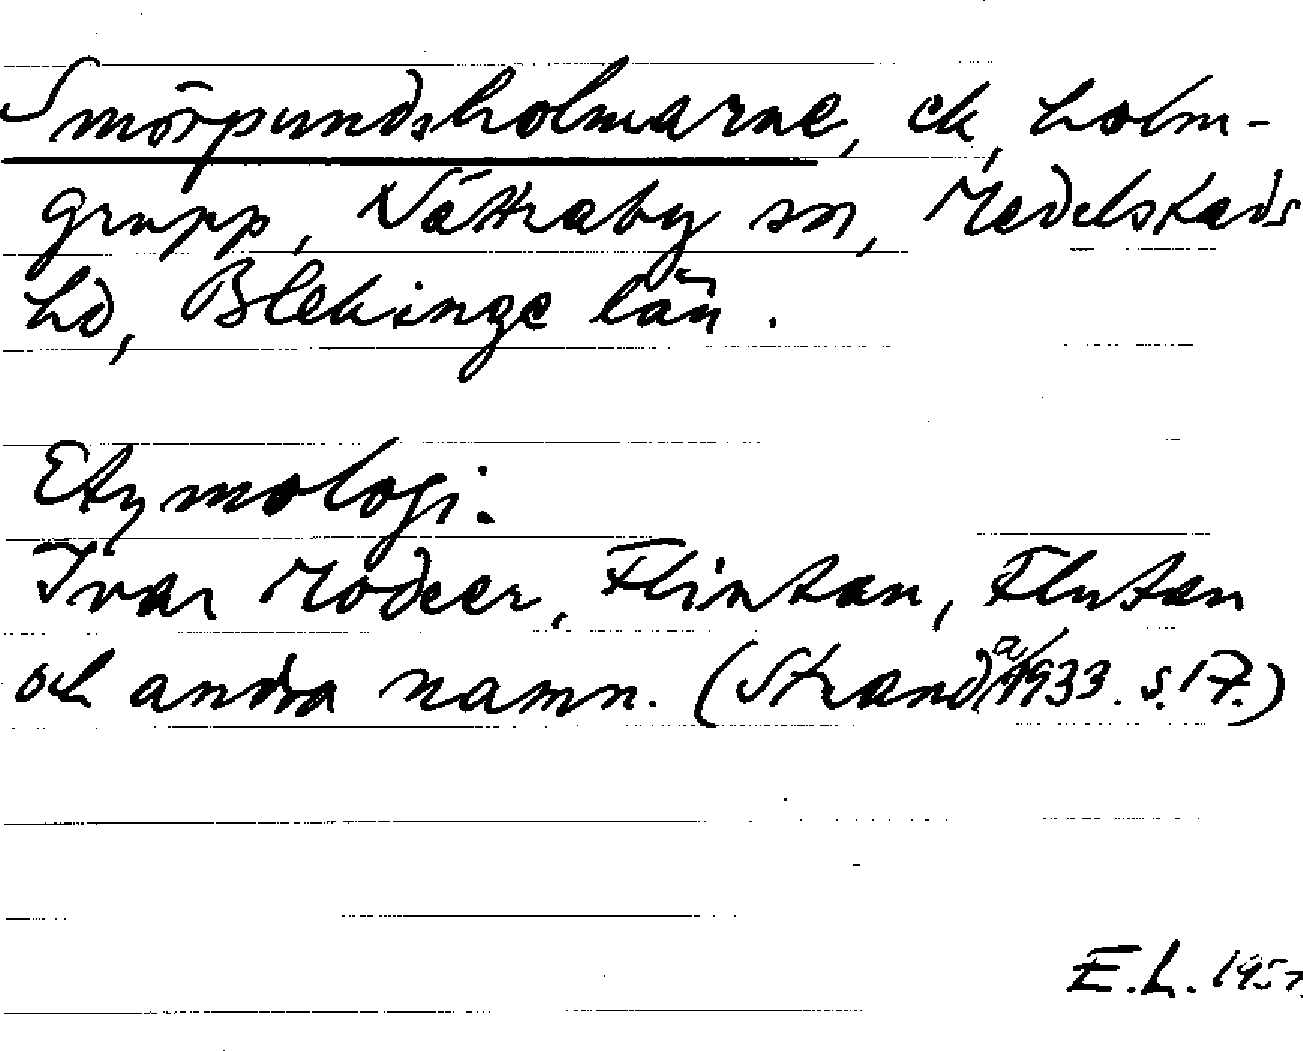 Smörpundsholmarne, ek, holm-
grupp, Nättraby sn, Medelstads
hd, Blekinge län.
Etymologi.
Ivar Modéer, Flintan, Flutan
och andra namn. (Strand/a/ 1933. s. 17.)
E.L. 1957.